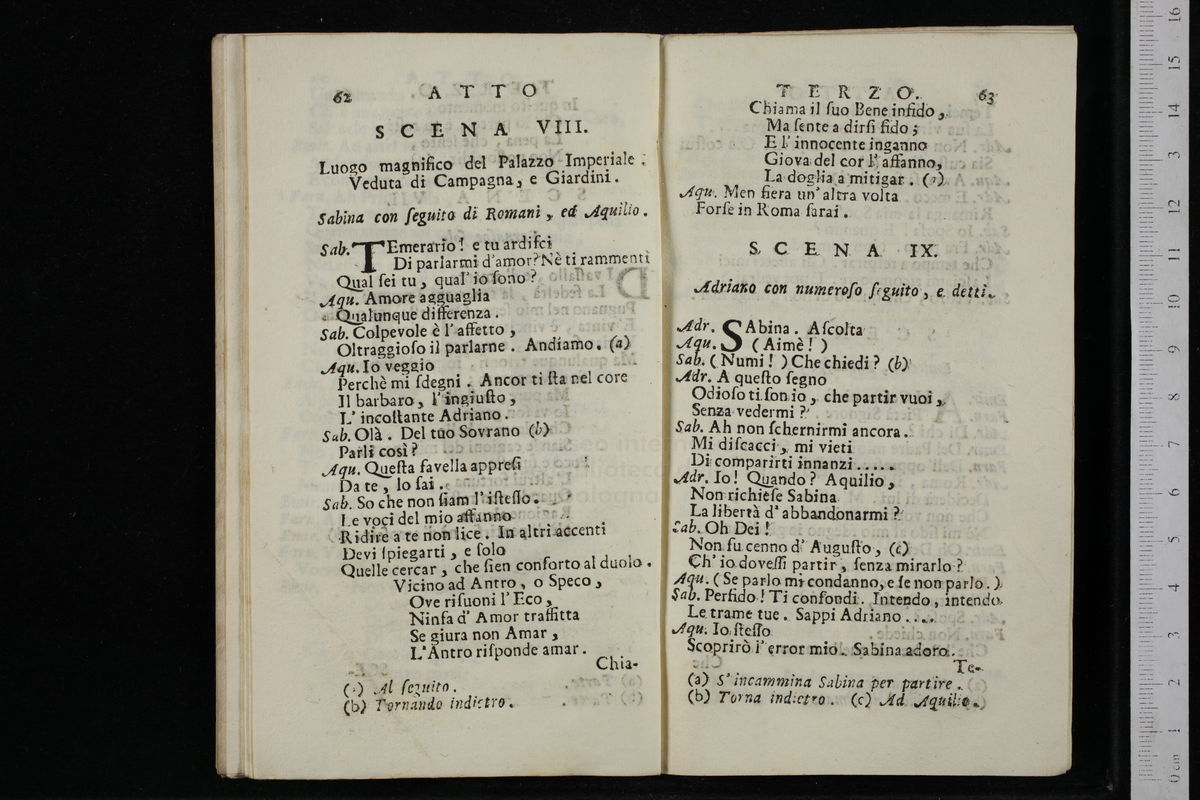 62 ATTO
SCENA VIII.
Luogo magnifico del Palazzo Imperiale.
Veduta di Campagna, e Giardini.
Sabina con ſeguito di Romani, ed Aquilio.
Sab. TEmerario! e tu ardiſci
Di parlarmi d'amor? Nè ti rammenti
Qual ſei tu, qual' io ſono?
Aqu. Amore agguaglia
Qualunque differenza.
Sab. Colpevole è l'affetto,
Oltraggioſo il parlarne. Andiamo. (a)
Aqu. Io veggio
Perchè mi ſdegni. Ancor ti ſta nel core
Il barbaro, l'ingiuſto,
L'incoſtante Adriano.
Sab. Olà. Del tuo Sovrano (b)
Parli così?
Aqu. Queſta favella appreſi
Da te, lo ſai.
Sab. So che non ſiam l'iſteſſo.
Le voci del mio affanno
Ridire a te non lice. In altri accenti
Devi ſpiegarti, e ſolo
Quelle cercar, che ſien conforto al duolo.
Vicino ad Antro, o Speco,
Ove riſuoni l'Eco,
Ninfa d'Amor traffitta
Se giura non Amar,
L'Antro riſponde amar.
Chia-
(a) Al ſeguito.
(b) Tornando indietro.
TERZO. 63
Chiama il ſuo Bene infido,
Ma ſente a dirſi fido;
E l'innocente inganno
Giova del cor l'affanno,
La doglia a mitigar. (a)
Aqu. Men fiera un'altra volta
Forſe in Roma ſarai.
SCENA IX.
Adriano con numeroſo ſeguito, e detti.
Adr. SAbina. Aſcolta
Aqu. (Aimè!)
Sab. (Numi!) Che chiedi? (b)
Adr. A queſto ſegno
Odioſo ti ſon io, che partir vuoi,
Senza vedermi?
Sab. Ah non ſchernirmi ancora.
Mi diſcacci, mi vieti
Di comparirti innanzi.....
Adr. Io! Quando? Aquilio,
Non richieſe Sabina
La libertà d'abbandonarmi?
Sab. Oh Dei!
Non fu cenno d'Auguſto, (c)
Ch'io doveſſi partir, ſenza mirarlo?
Aqu. (Se parlo mi condanno, e ſe non parlo.)
Sab. Perfido! Ti confondi. Intendo, intendo
Le trame tue. Sappi Adriano....
Aqu. Io ſteſſo
Scoprirò l'error mio. Sabina adoro.
Te-
(a) S'incammina Sabina per partire.
(b) Torna indietro. (c) Ad Aquilio.
16
15
14
13
12
11
10
9
8
7
6
5
4
3
2
1
0 cm